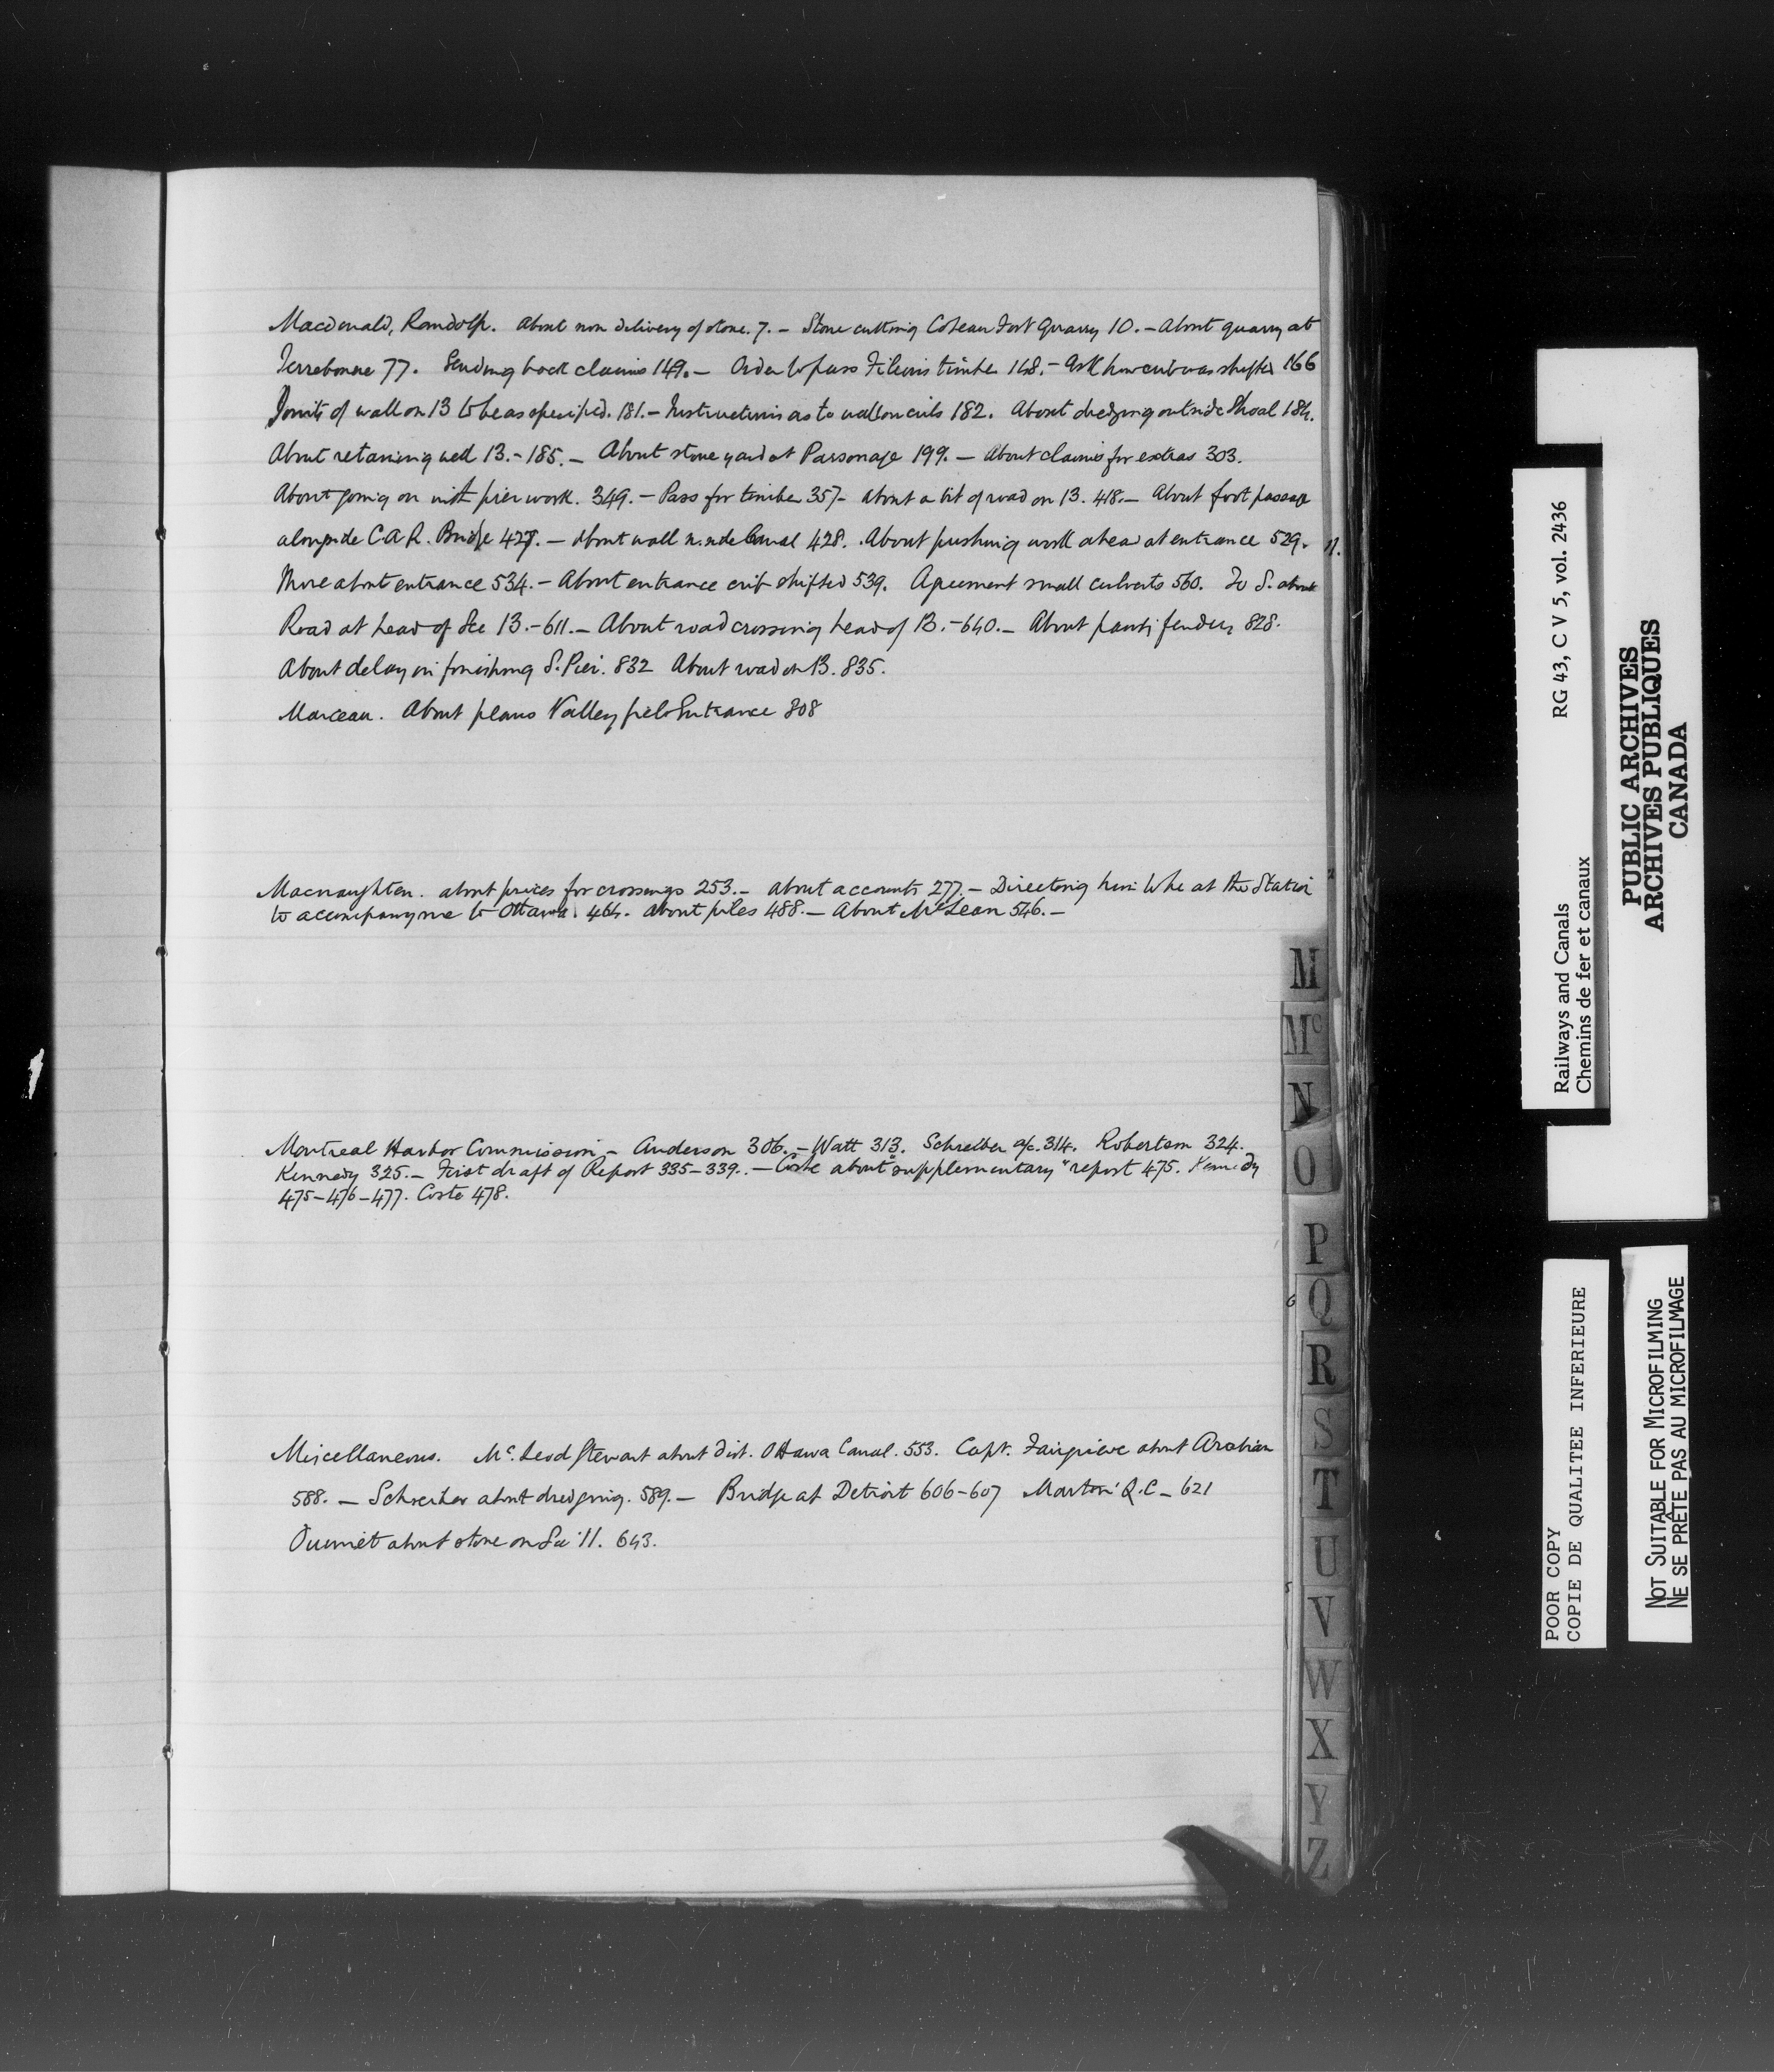 Macdonald, Randolph. About non delivery of stone. 7. – Stone cutting Coteau Fort Quarry 10. – About quarry at
Terrebonne 77. Sending back claims 149. – Order to pass Filion's timber 148. – Ask how crib was shifted 166
Joints of wall on 13 to be as specified. 181. – Instructions as to wall on cribs 182. About dredging outside Shoal 184.
About retaining wall 13. – 185. – About stone yard at Parsonage 199. – About claims for extras 303.
About going on with pier work. 349. – Pass for timber 357 – about a bit of road on 13. 418. – About foot passage
alongside C.A.R. Bridge 427. – About wall n. side Canal 428. About pushing work ahead at entrance 529.
More about entrance 534. – About entrance crib shifted 539. Agreement small culverts 560. To S. about
Road at head of Sec 13. – 611. – About road crossing head of 13. – 640. – About fenders 828.
About delay in finishing S. Pier. 832 About road on 13. 835.
Marceau. About plans Valleyfield Entrance 808
Macnaughten. about prices for crossings 253. – about accounts 277. – Directing him to be at the Station
to accompany me to Ottawa 464. about piles 488. – About McLean 546. –
Montreal Harbor Commission – Anderson 306. – Watt 313. Schreiber a/c. 314. Robertson 324.
Kennedy 325. – First draft of Report 335–339. – Coste about "supplementary" report 475. Kennedy
475–476–477. Coste 478.
Miscellaneous. Mc.Leod Stewart about dist. Ottawa Canal. 553. Capt. Fairgrieve about Arabian
588. – Schreiber about dredging. 589. – Bridge at Detroit 606–607 Marton Q.C – 621
Ouimet about stone on Sec 11. 643.
M
Mc
N
O
P
Q
R
S
T
U
V
W
X
Y
Z
Railways and Canals RG 43, C V 5, vol. 2436
Chemins de fer et canaux
PUBLIC ARCHIVES
ARCHIVES PUBLIQUES
CANADA
POOR COPY
COPIE DE QUALITEE INFERIEURE
NOT SUITABLE FOR MICROFILMING
NE SE PRÊTE PAS AU MICROFILMAGE